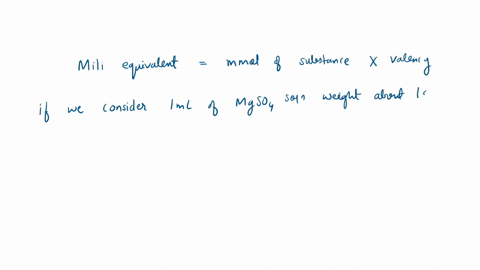 Mili equivalent = mmol of substance X valency
if we consider 1mL of MgSO4 soln weight about 1